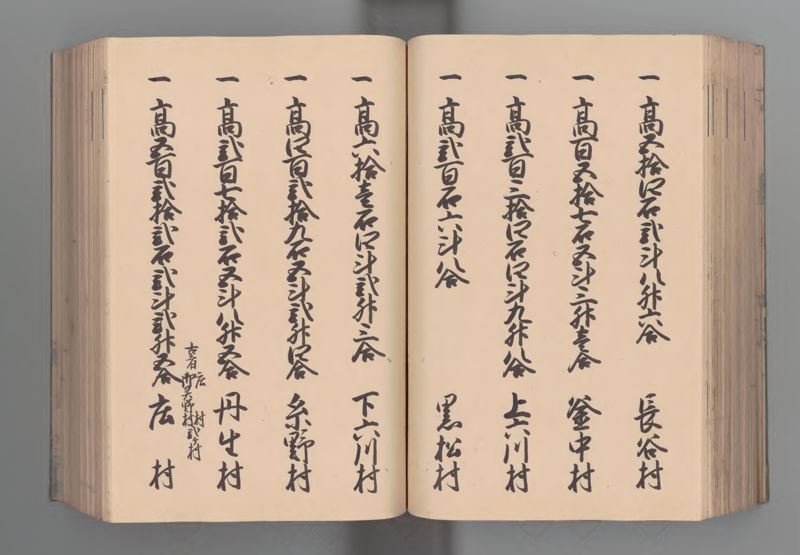 一 高五拾四石弐斗八升六合 長谷村
一 高百五拾七石五斗三升壱合 釜中村
一 高弐百三拾四石四斗九升八合 上六川村
一 高弐百石六斗八合 黒松村
一 高六拾壱石四斗弐升三合 下六川村
一 高四百弐拾九石五斗弐升四合 糸野村
一 高弐百七拾弐石五斗八升五合 丹生村
一 高五百弐拾弐石弐斗弐升五合 庄村
古者 庄村
野村弐ヶ村